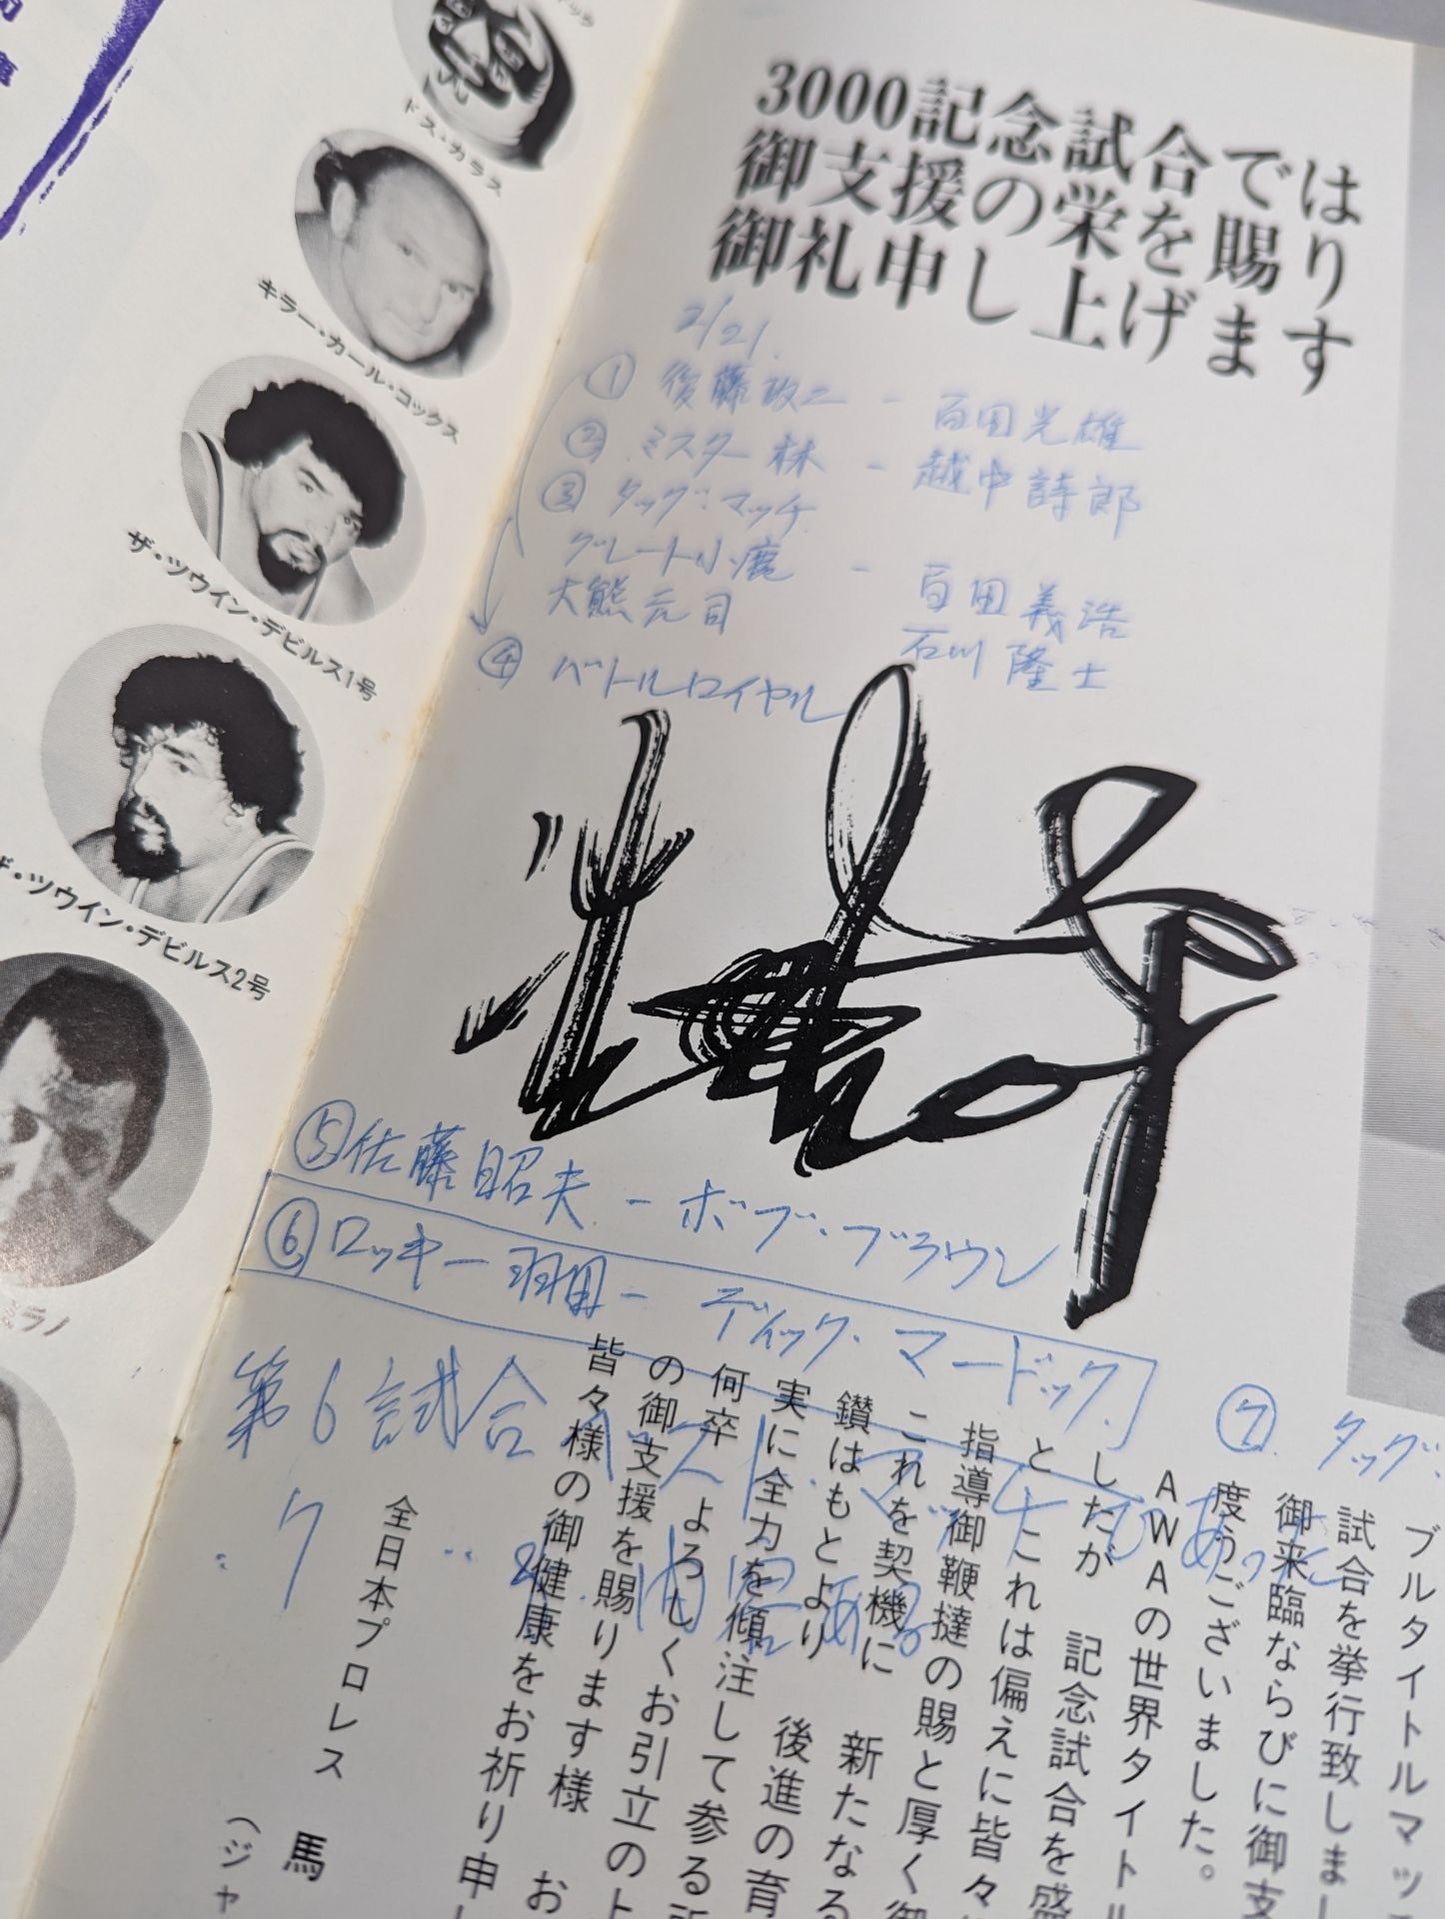 ドス・カラス
キラー・カール・コックス
ザ・ツウイン・デビルス1号
ザ・ツウイン・デビルス2号
3000記念試合では
御支援の栄を賜りす
御礼申し上げま
2/21.
① 後藤政二 - 百田光雄
② ミスター林 - 越中詩郎
③ タッグ・マッチ
グレート小鹿 - 百田義浩
大熊元司 石川隆士
④ バトルロイヤル
⑤ 佐藤昭夫 - ボブ・ブラウン
⑥ ロッキー羽田 - ディック・マードック
第6試合ベストマッチであった
⑦ タッグ・
ブルタイトルマッ
試合を挙行致しまし
御来臨ならびに御支
度うございました。
AWAの世界タイトル
したが 記念試合を盛
とこれは偏えに皆々
指導御鞭撻の賜と厚く御
これを契機に 新たなる
鑚はもとより 後進の育
実に全力を傾注して参る所
何卒 よろしくお引立の上
の御支援を賜ります様 お
皆々様の御健康をお祈り申し
全日本プロレス
馬
(ジャ